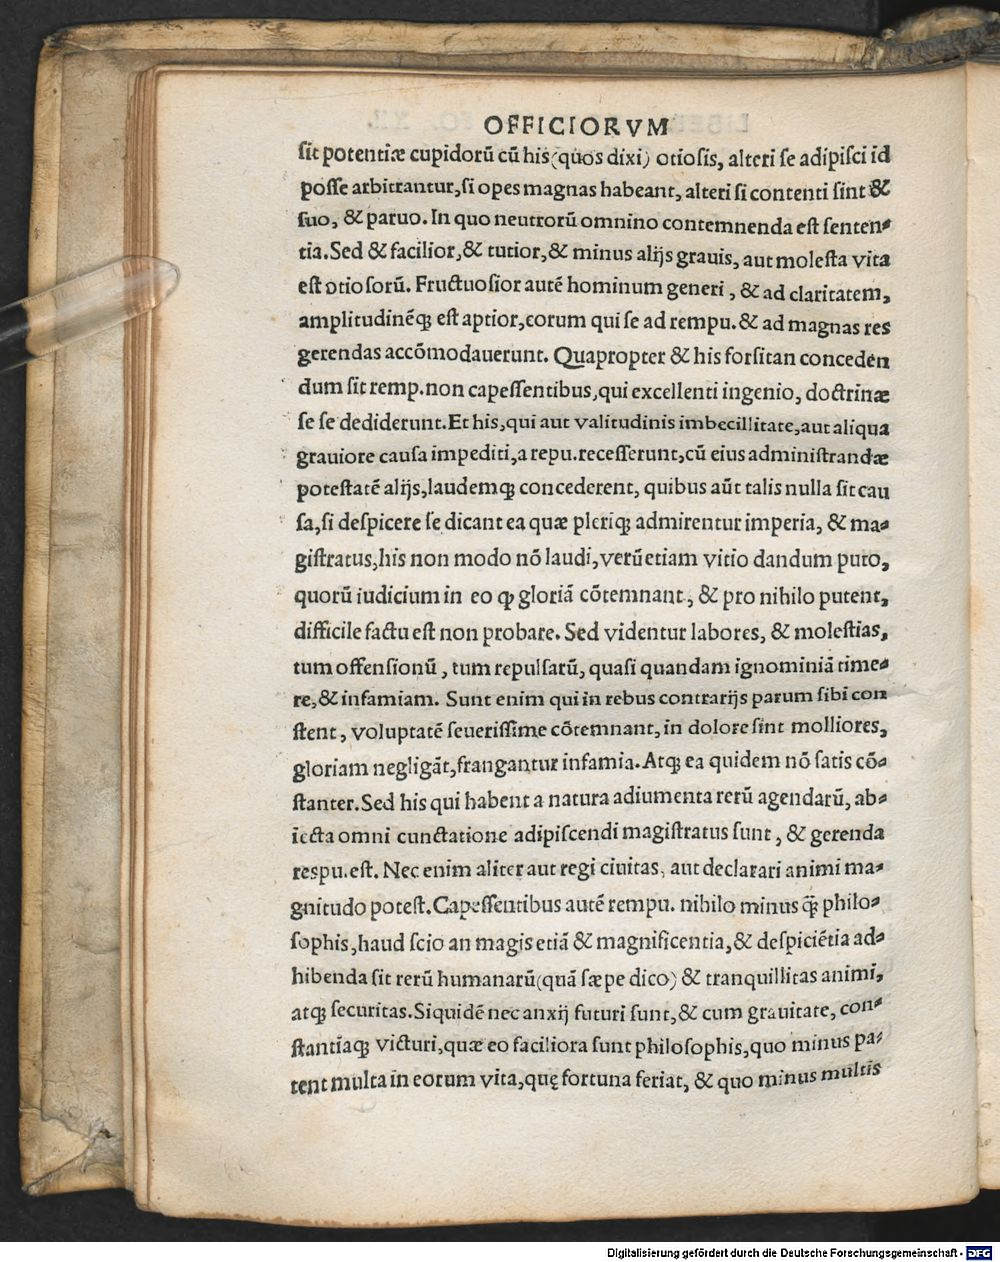 OFFICIORVM
ſit potentiæ cupidorũ cũ his (quos dixi) otioſis, alteri ſe adipiſci id
poſſe arbitrantur, ſi opes magnas habeant, alteri ſi contenti ſint &
ſuo, & paruo. In quo neutrorũ omnino contemnenda eſt ſenten-
tia. Sed & facilior, & tutior, & minus alijs grauis, aut moleſta vita
eſt otioſorũ. Fructuoſior autẽ hominum generi, & ad claritatem,
amplitudinẽq; eſt aptior, eorum qui ſe ad rempu. & ad magnas res
gerendas accõmodauerunt. Quapropter & his forſitan conceden
dum ſit remp. non capeſſentibus, qui excellenti ingenio, doctrinæ
ſe ſe dediderunt. Et his, qui aut valitudinis imbecillitate, aut aliqua
grauiore cauſa impediti, a repu. receſſerunt, cũ eius adminiſtrandæ
poteſtatẽ alijs, laudemq; concederent, quibus aũt talis nulla ſit cau
ſa, ſi deſpicere ſe dicant ea quæ pleriq; admirentur imperia, & ma-
giſtratus, his non modo nõ laudi, verũ etiam vitio dandum puto,
quorũ iudicium in eo ꝙ gloriã cõtemnant, & pro nihilo putent,
difficile factu eſt non probare. Sed videntur labores, & moleſtias,
tum offenſionũ, tum repulſarũ, quaſi quandam ignominiã time-
re, & infamiam. Sunt enim qui in rebus contrarijs parum ſibi con
ſtent, voluptatẽ ſeueriſſime cõtemnant, in dolore ſint molliores,
gloriam negligãt, frangantur infamia. Atq; ea quidem nõ ſatis cõ-
ſtanter. Sed his qui habent a natura adiumenta rerũ agendarũ, ab-
iecta omni cunctatione adipiſcendi magiſtratus ſunt, & gerenda
reſpu. eſt. Nec enim aliter aut regi ciuitas, aut declarari animi ma-
gnitudo poteſt. Capeſſentibus autẽ rempu. nihilo minus q̃ philo-
ſophis, haud ſcio an magis etiã & magnificentia, & deſpiciẽtia ad-
hibenda ſit rerũ humanarũ (quã ſæpe dico) & tranquillitas animi,
atq; ſecuritas. Siquidẽ nec anxij futuri ſunt, & cum grauitate, con-
ſtantiaq; victuri, quæ eo faciliora ſunt philoſophis, quo minus pa-
tent multa in eorum vita, quę fortuna feriat, & quo minus multis
Digitalisierung gefördert durch die Deutsche Forschungsgemeinschaft - DFG